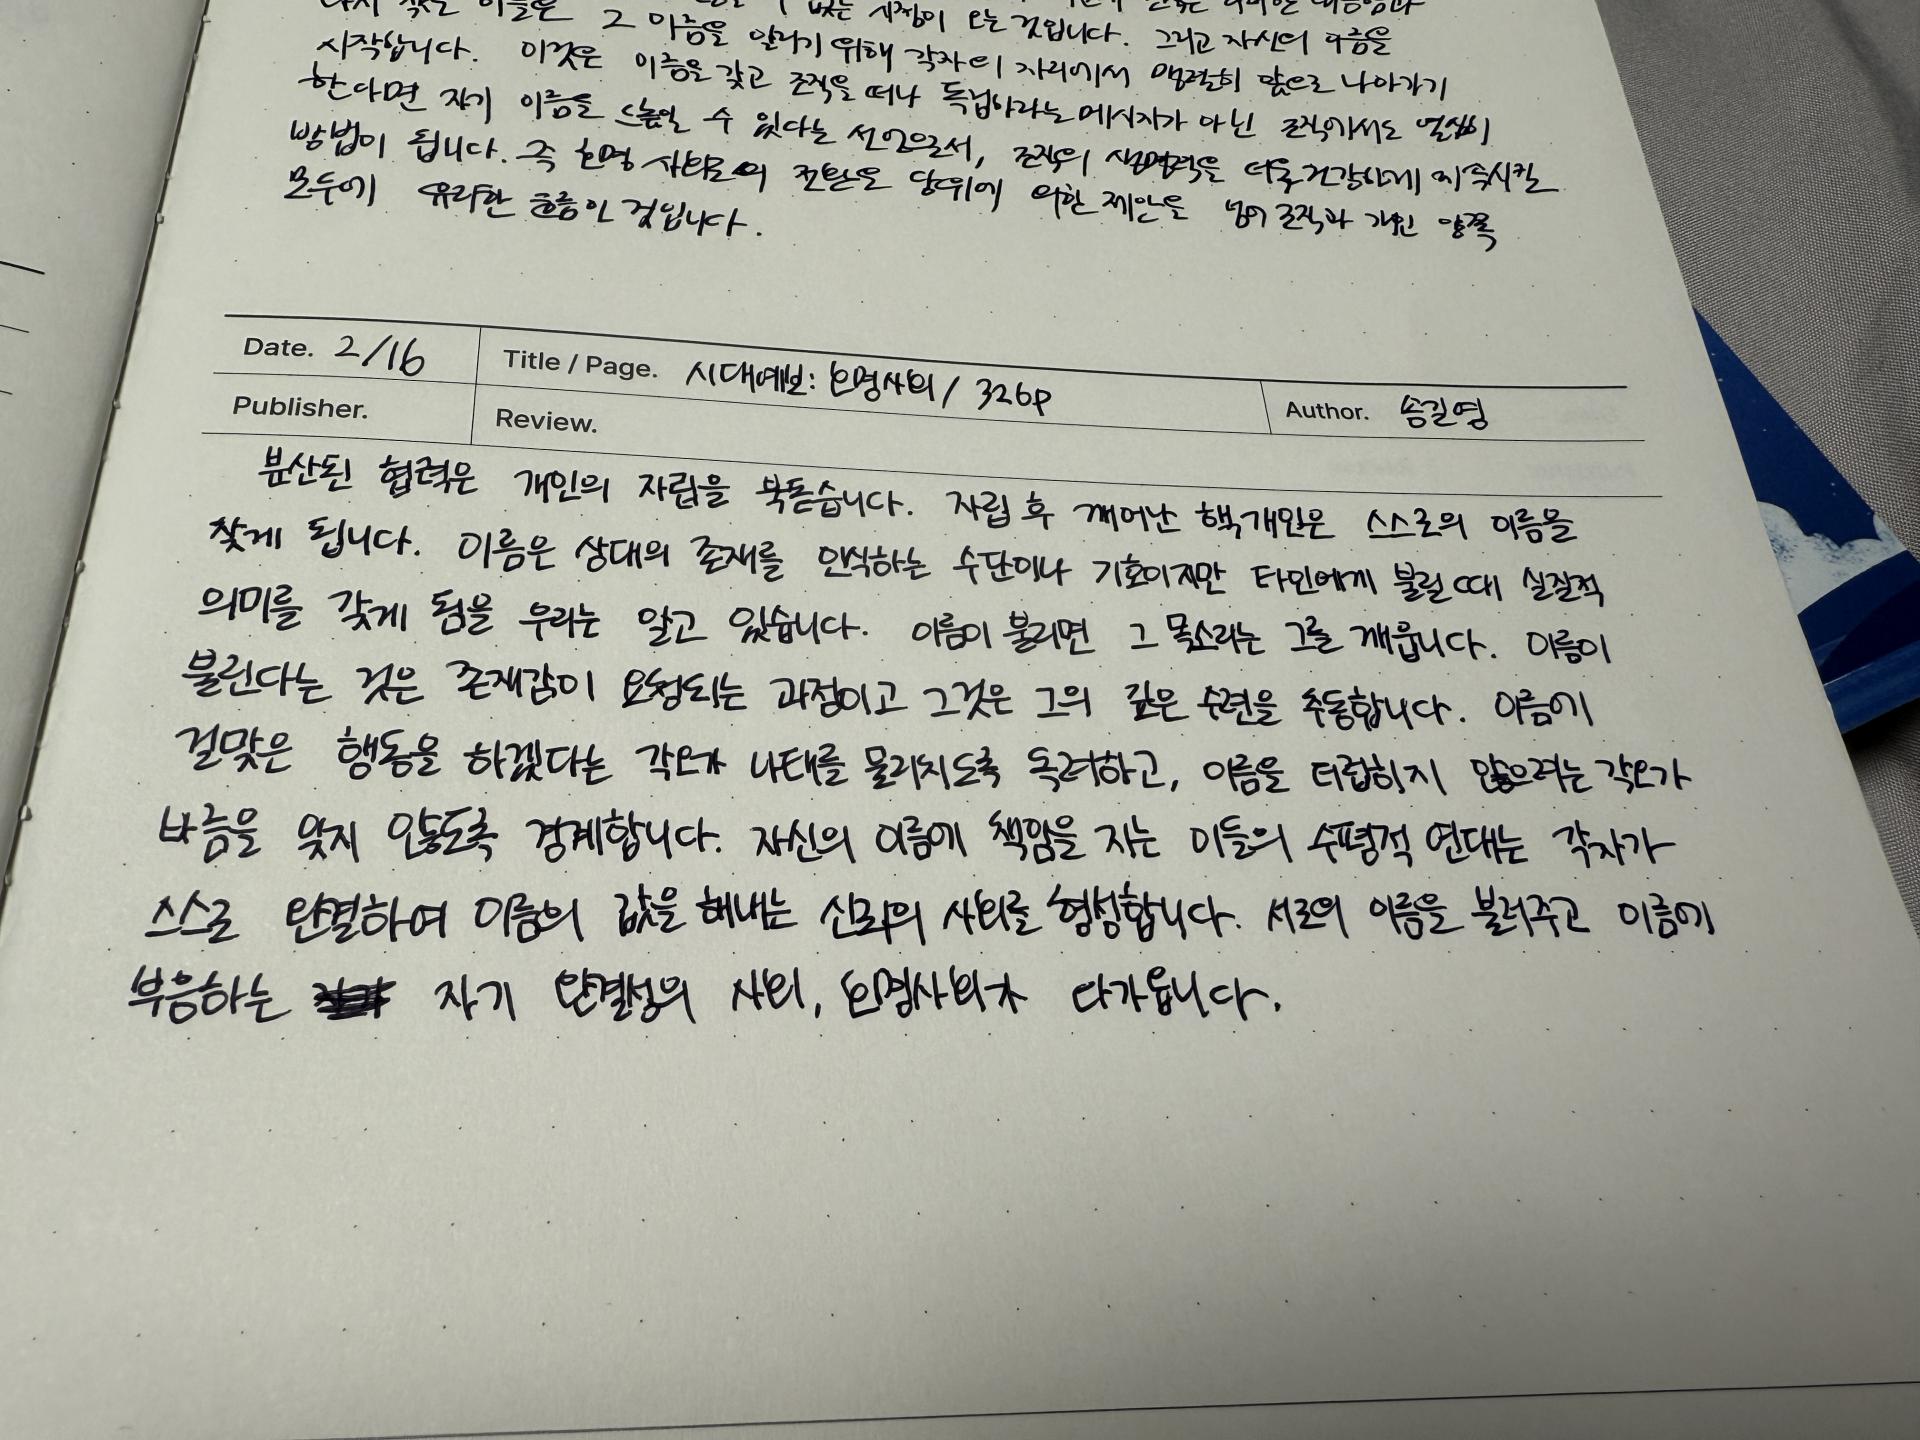 없는 시점이 오는 것입니다. 그리고 자신의 이름을
시작합니다. 그 이름을 알리기 위해 각자의 자리에서 맹렬히 앞으로 나아가기
이것은 이름을 갖고 조직을 떠나 독립하라는 메시지가 아닌 조직에서도 열심히
한다면 자기 이름을 드높일 수 있다는 선언으로서, 조직의 생명력을 더욱 건강하게 지속시킬
방법이 됩니다. 즉 호명사회로의 전환은 당위에 의한 제안을 넘어 조직과 개인 양쪽
모두에 유리한 흐름인 것입니다.
Date. 2/16 Title / Page. 시대예보: 호명사회 / 326p Author. 송길영
Publisher. Review.
분산된 협력은 개인의 자립을 북돋습니다. 자립 후 깨어난 핵개인은 스스로의 이름을
찾게 됩니다. 이름은 상대의 존재를 인식하는 수단이나 기호이지만 타인에게 불릴 때 실질적
의미를 갖게 됨을 우리는 알고 있습니다. 이름이 불리면 그 목소리는 그를 깨웁니다. 이름이
불린다는 것은 존재감이 요청되는 과정이고 그것은 그의 깊은 수련을 추동합니다. 이름에
걸맞은 행동을 하겠다는 각오가 나태를 물리치도록 독려하고, 이름을 더럽히지 않으려는 각오가
바름을 잊지 않도록 경계합니다. 자신의 이름에 책임을 지는 이들의 수평적 연대는 각자가
스스로 완결하여 이름의 값을 해내는 신뢰의 사회를 형성합니다. 서로의 이름을 불러주고 이름에
부응하는 자기 완결성의 사회, 호명사회가 다가옵니다.